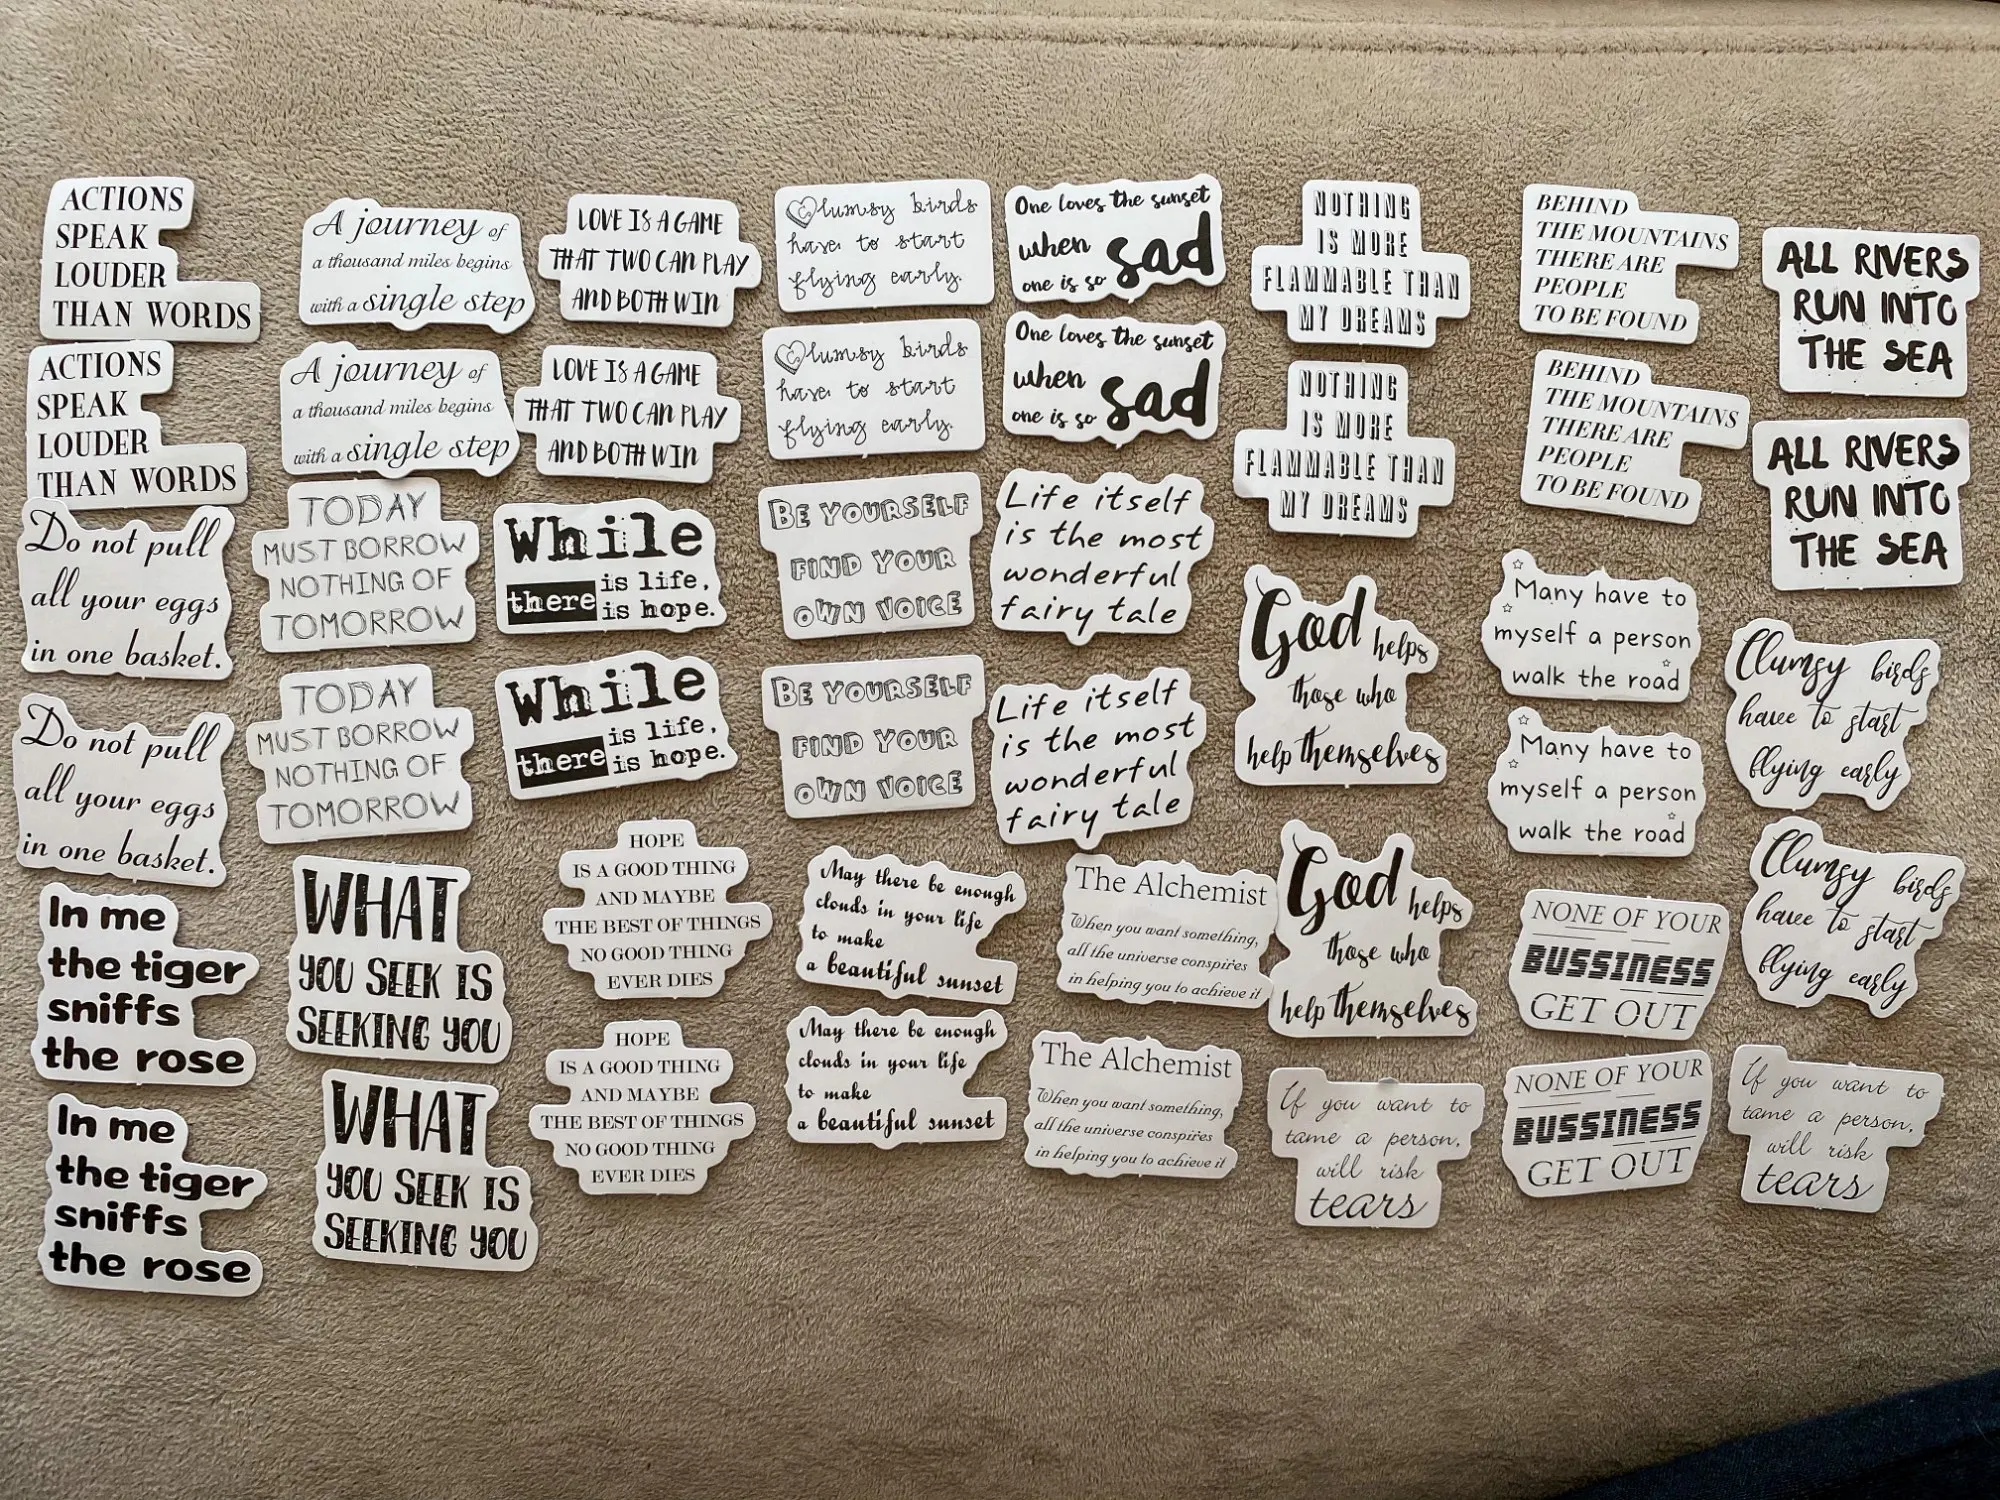 ACTIONS
SPEAK
LOUDER
THAN WORDS
A journey of
a thousand miles begins
with a single step
LOVE IS A GAME
THAT TWO CAN PLAY
AND BOTH WIN
Clumsy birds
have to start
flying early.
One loves the sunset
when sad
one is so
NOTHING
IS MORE
FLAMMABLE THAN
MY DREAMS
BEHIND
THE MOUNTAINS
THERE ARE
PEOPLE
TO BE FOUND
ALL RIVERS
RUN INTO
THE SEA
ACTIONS
SPEAK
LOUDER
THAN WORDS
A journey of
a thousand miles begins
with a single step
LOVE IS A GAME
THAT TWO CAN PLAY
AND BOTH WIN
Clumsy birds
have to start
flying early.
One loves the sunset
when sad
one is so
NOTHING
IS MORE
FLAMMABLE THAN
MY DREAMS
BEHIND
THE MOUNTAINS
THERE ARE
PEOPLE
TO BE FOUND
ALL RIVERS
RUN INTO
THE SEA
Do not pull
all your eggs
in one basket.
TODAY
MUST BORROW
NOTHING OF
TOMORROW
While
there is life,
is hope.
BE YOURSELF
FIND YOUR
OWN VOICE
Life itself
is the most
wonderful
fairy tale
God helps
those who
help themselves
Many have to
myself a person
walk the road
Clumsy birds
have to start
flying early
Do not pull
all your eggs
in one basket.
TODAY
MUST BORROW
NOTHING OF
TOMORROW
While
there is life,
is hope.
BE YOURSELF
FIND YOUR
OWN VOICE
Life itself
is the most
wonderful
fairy tale
God helps
those who
help themselves
Many have to
myself a person
walk the road
Clumsy birds
have to start
flying early
In me
the tiger
sniffs
the rose
WHAT
YOU SEEK IS
SEEKING YOU
HOPE
IS A GOOD THING
AND MAYBE
THE BEST OF THINGS
NO GOOD THING
EVER DIES
May there be enough
clouds in your life
to make
a beautiful sunset
The Alchemist
When you want something,
all the universe conspires
in helping you to achieve it
NONE OF YOUR
BUSSINESS
GET OUT
In me
the tiger
sniffs
the rose
WHAT
YOU SEEK IS
SEEKING YOU
HOPE
IS A GOOD THING
AND MAYBE
THE BEST OF THINGS
NO GOOD THING
EVER DIES
May there be enough
clouds in your life
to make
a beautiful sunset
The Alchemist
When you want something,
all the universe conspires
in helping you to achieve it
If you want to
tame a person,
will risk
tears
NONE OF YOUR
BUSSINESS
GET OUT
If you want to
tame a person,
will risk
tears